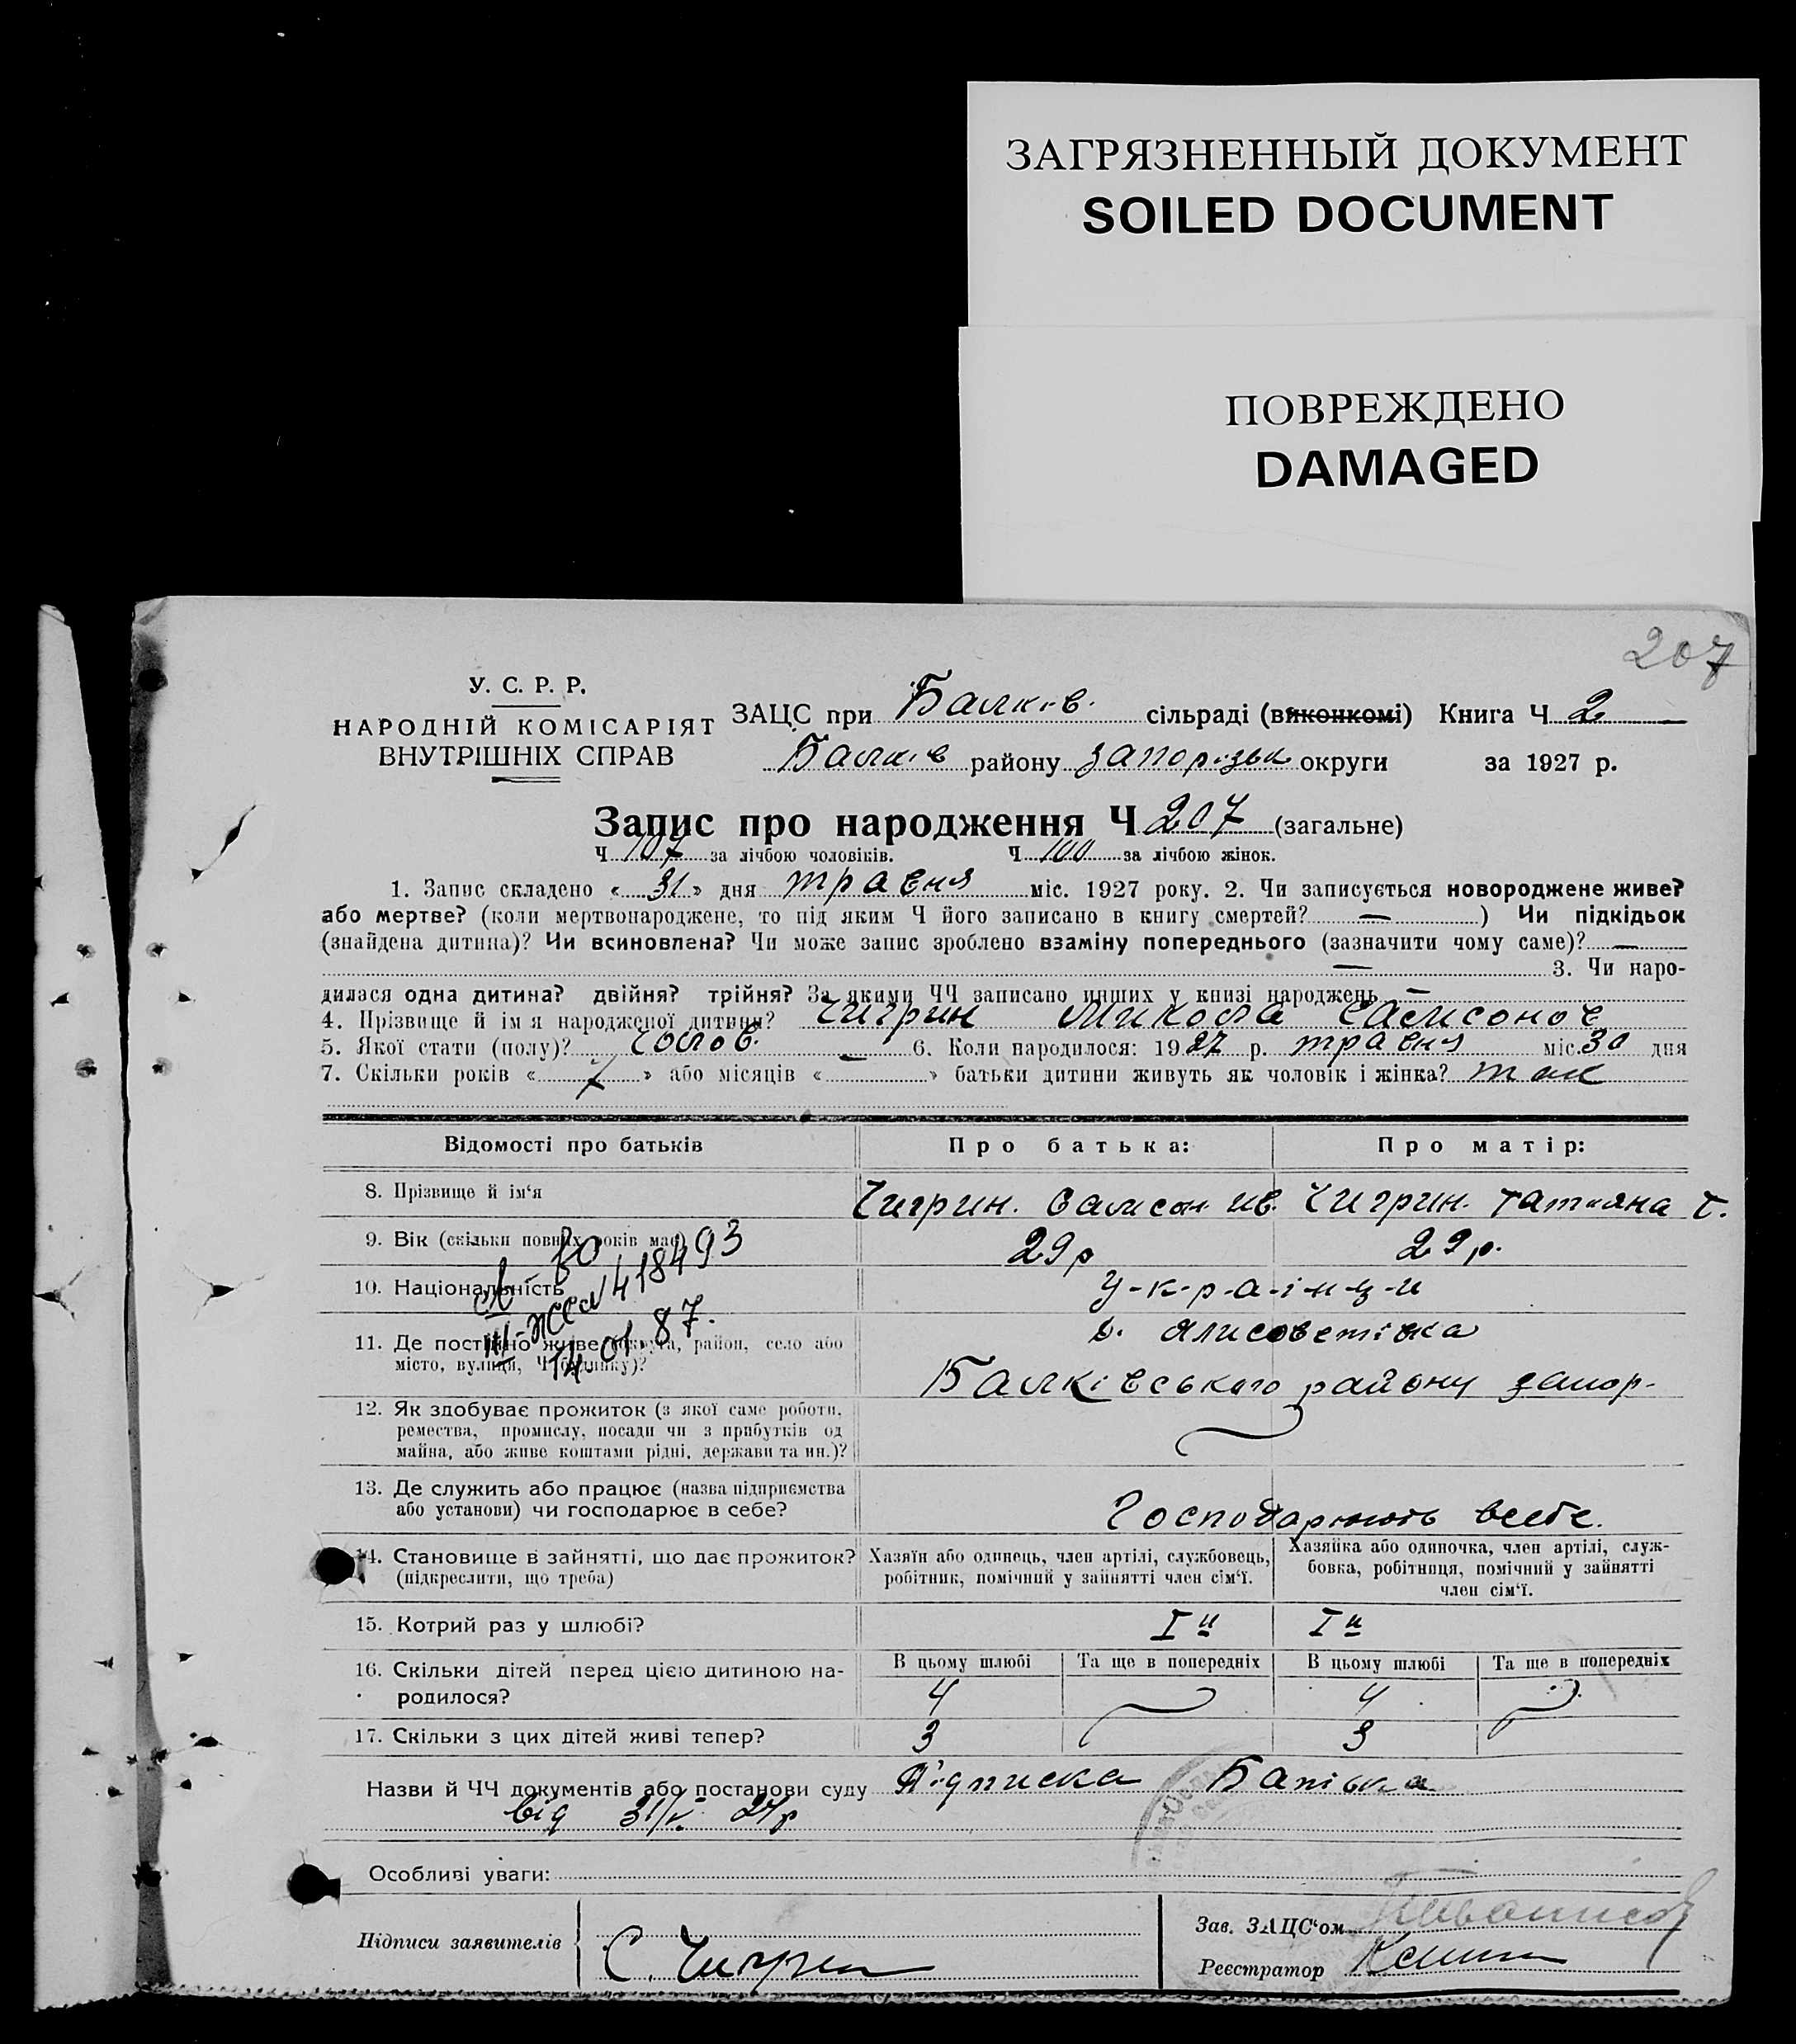 ЗАГРЯЗНЕННЫЙ ДОКУМЕНТ
SOILED DOCUMENT
ПОВРЕЖДЕНО
DAMAGED
207
У. С. Р. Р.
НАРОДНІЙ КОМІСАРІЯТ
ВНУТРІШНІХ СПРАВ
ЗАЦС при Балків. сільраді (виконкомі) Книга Ч 2
Балків району Запорізьк округи за 1927 р.
Запис про народження Ч 207 (загальне)
Ч 107 за лічбою чоловіків. Ч 100 за лічбою жінок.
1. Запис складено « 31 » дня травня міс. 1927 року. 2. Чи записується новороджене живе?
або мертве? (коли мертвонароджене, то під яким Ч його записано в книгу смертей? — ) Чи підкідьок
(знайдена дитина)? Чи всиновлена? Чи може запис зроблено взаміну попереднього (зазначити чому саме)? —
— 3. Чи наро-
дилася одна дитина? двійня? трійня? За якими ЧЧ записано инших у книзі народжень —
4. Прізвище й ім я народженої дитини? Чигрин Микола Самсонов
5. Якої стати (полу)? чолов. — 6. Коли народилося: 1927 р. травня міс. 30 дня
7. Скільки років « 7 » або місяців « » батьки дитини живуть як чоловік і жінка? так
Відомості про батьків Про батька: Про матір:
8. Прізвище й ім'я Чигрин. Самсон Ив. Чигрин. Татияна Т.
9. Вік (скільки повних років має) 29 р 29 р.
10. Національність у-к-р-а-ї-н-ц-и
418493
14.01.87.
11. Де постійно живе (округа, район, село або
місто, вулиця, Ч будинку)?
с. Ялисоветівка
Балківського району запор-
12. Як здобуває прожиток (з якої саме роботи,
ремества, промислу, посади чи з прибутків од
майна, або живе коштами рідні, держави та ин.)?
13. Де служить або працює (назва підприємства
або установи) чи господарює в себе?
Господарюють всебе.
14. Становище в зайнятті, що дає прожиток?
(підкреслити, що треба)
Хазяїн або одинець, член артілі, службовець,
робітник, помічний у зайнятті член сім'ї.
Хазяйка або одиночка, член артілі, служ-
бовка, робітниця, помічний у зайнятті
член сім'ї.
15. Котрий раз у шлюбі? I й I й
16. Скільки дітей перед цією дитиною на-
родилося?
В цьому шлюбі Та ще в попередніх В цьому шлюбі Та ще в попередніх
4 4
17. Скільки з цих дітей живі тепер? 3 3
Назви й ЧЧ документів або постанови суду Підписка Батька
від 31/V. 27 р
Особливі уваги:
Підписи заявителів С. Чигрин
Зав. ЗАЦС'ом
Реєстратор